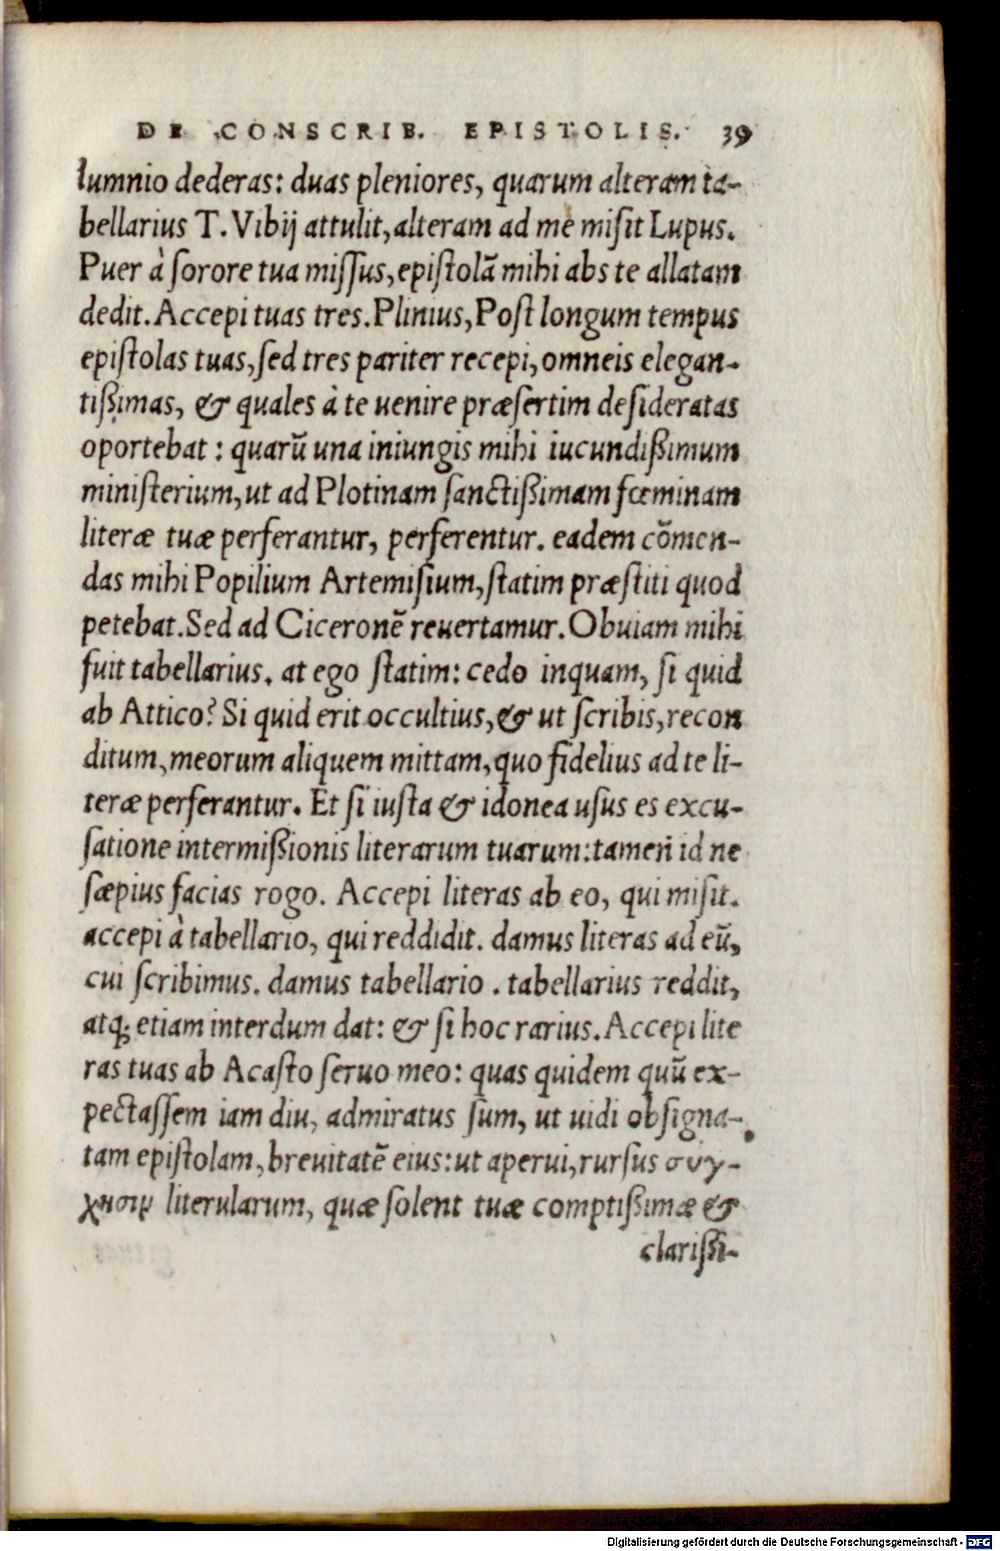 DE CONSCRIB. EPISTOLIS. 39
lumnio dederas: duas pleniores, quarum alteram ta-
bellarius T. Vibij attulit, alteram ad me miſit Lupus.
Puer à ſorore tua miſſus, epiſtolã mihi abs te allatam
dedit. Accepi tuas tres. Plinius, Poſt longum tempus
epiſtolas tuas, ſed tres pariter recepi, omneis elegan-
tißimas, & quales à te uenire præſertim deſideratas
oportebat : quarũ una iniungis mihi iucundißimum
miniſterium, ut ad Plotinam ſanctißimam fœminam
literæ tuæ perferantur, perferentur. eadem cõmen-
das mihi Popilium Artemiſium, ſtatim præſtiti quod
petebat. Sed ad Ciceronẽ reuertamur. Obuiam mihi
fuit tabellarius. at ego ſtatim: cedo inquam, ſi quid
ab Attico? Si quid erit occultius, & ut ſcribis, recon
ditum, meorum aliquem mittam, quo fidelius ad te li-
teræ perferantur. Et ſi iuſta & idonea uſus es excu-
ſatione intermißionis literarum tuarum: tamen id ne
ſæpius facias rogo. Accepi literas ab eo, qui miſit.
accepi à tabellario, qui reddidit. damus literas ad eũ,
cui ſcribimus. damus tabellario . tabellarius reddit,
atq; etiam interdum dat: & ſi hoc rarius. Accepi lite
ras tuas ab Acaſto ſeruo meo: quas quidem quũ ex-
pectaſſem iam diu, admiratus ſum, ut uidi obſigna-
tam epiſtolam, breuitatẽ eius: ut aperui, rurſus συγ-
χησιμ literularum, quæ ſolent tuæ comptißimæ &
clarißi-
Digitalisierung gefördert durch die Deutsche Forschungsgemeinschaft - DFG